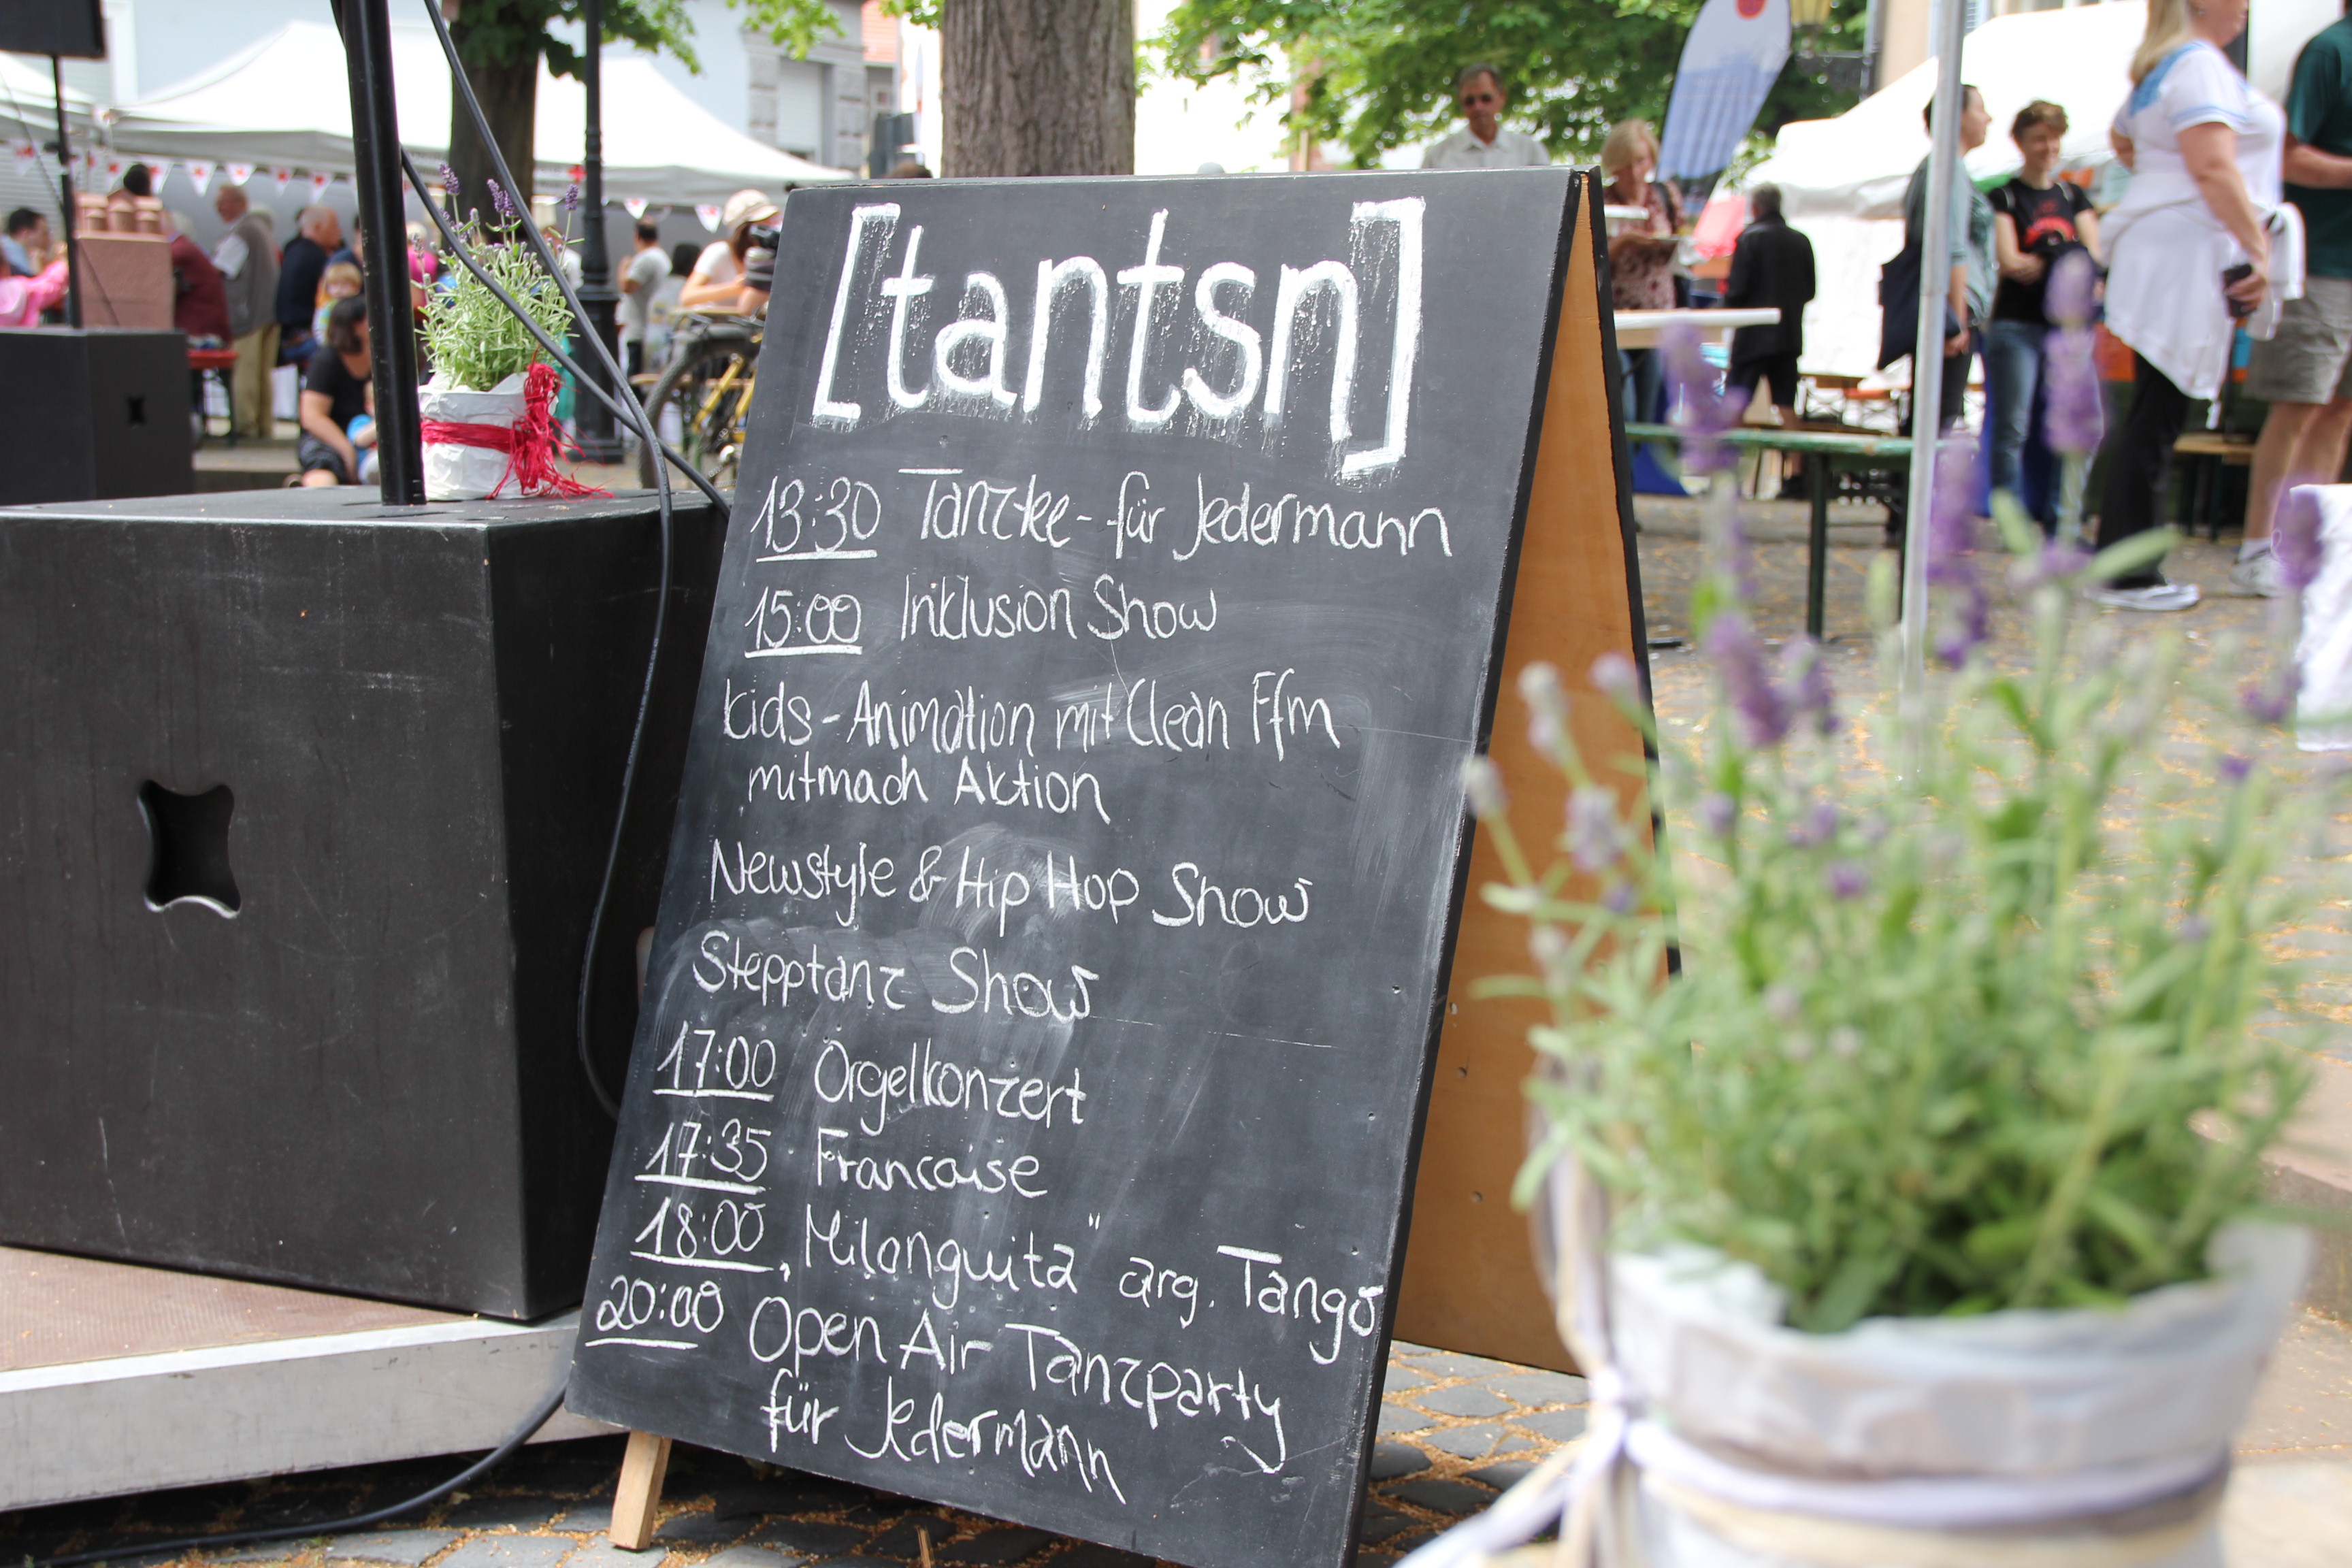 [tantsn]
13:30 Tanztee - für Jedermann
15:00 Inklusion Show
Kids - Animation mit Clean Ffm
mitmach Aktion
Newstyle & Hip Hop Show
Stepptanz Show
17:00 Orgelkonzert
17:35 Francaise
18:00 „Milonguita" arg. Tango
20:00 Open Air Tanzparty
für Jedermann